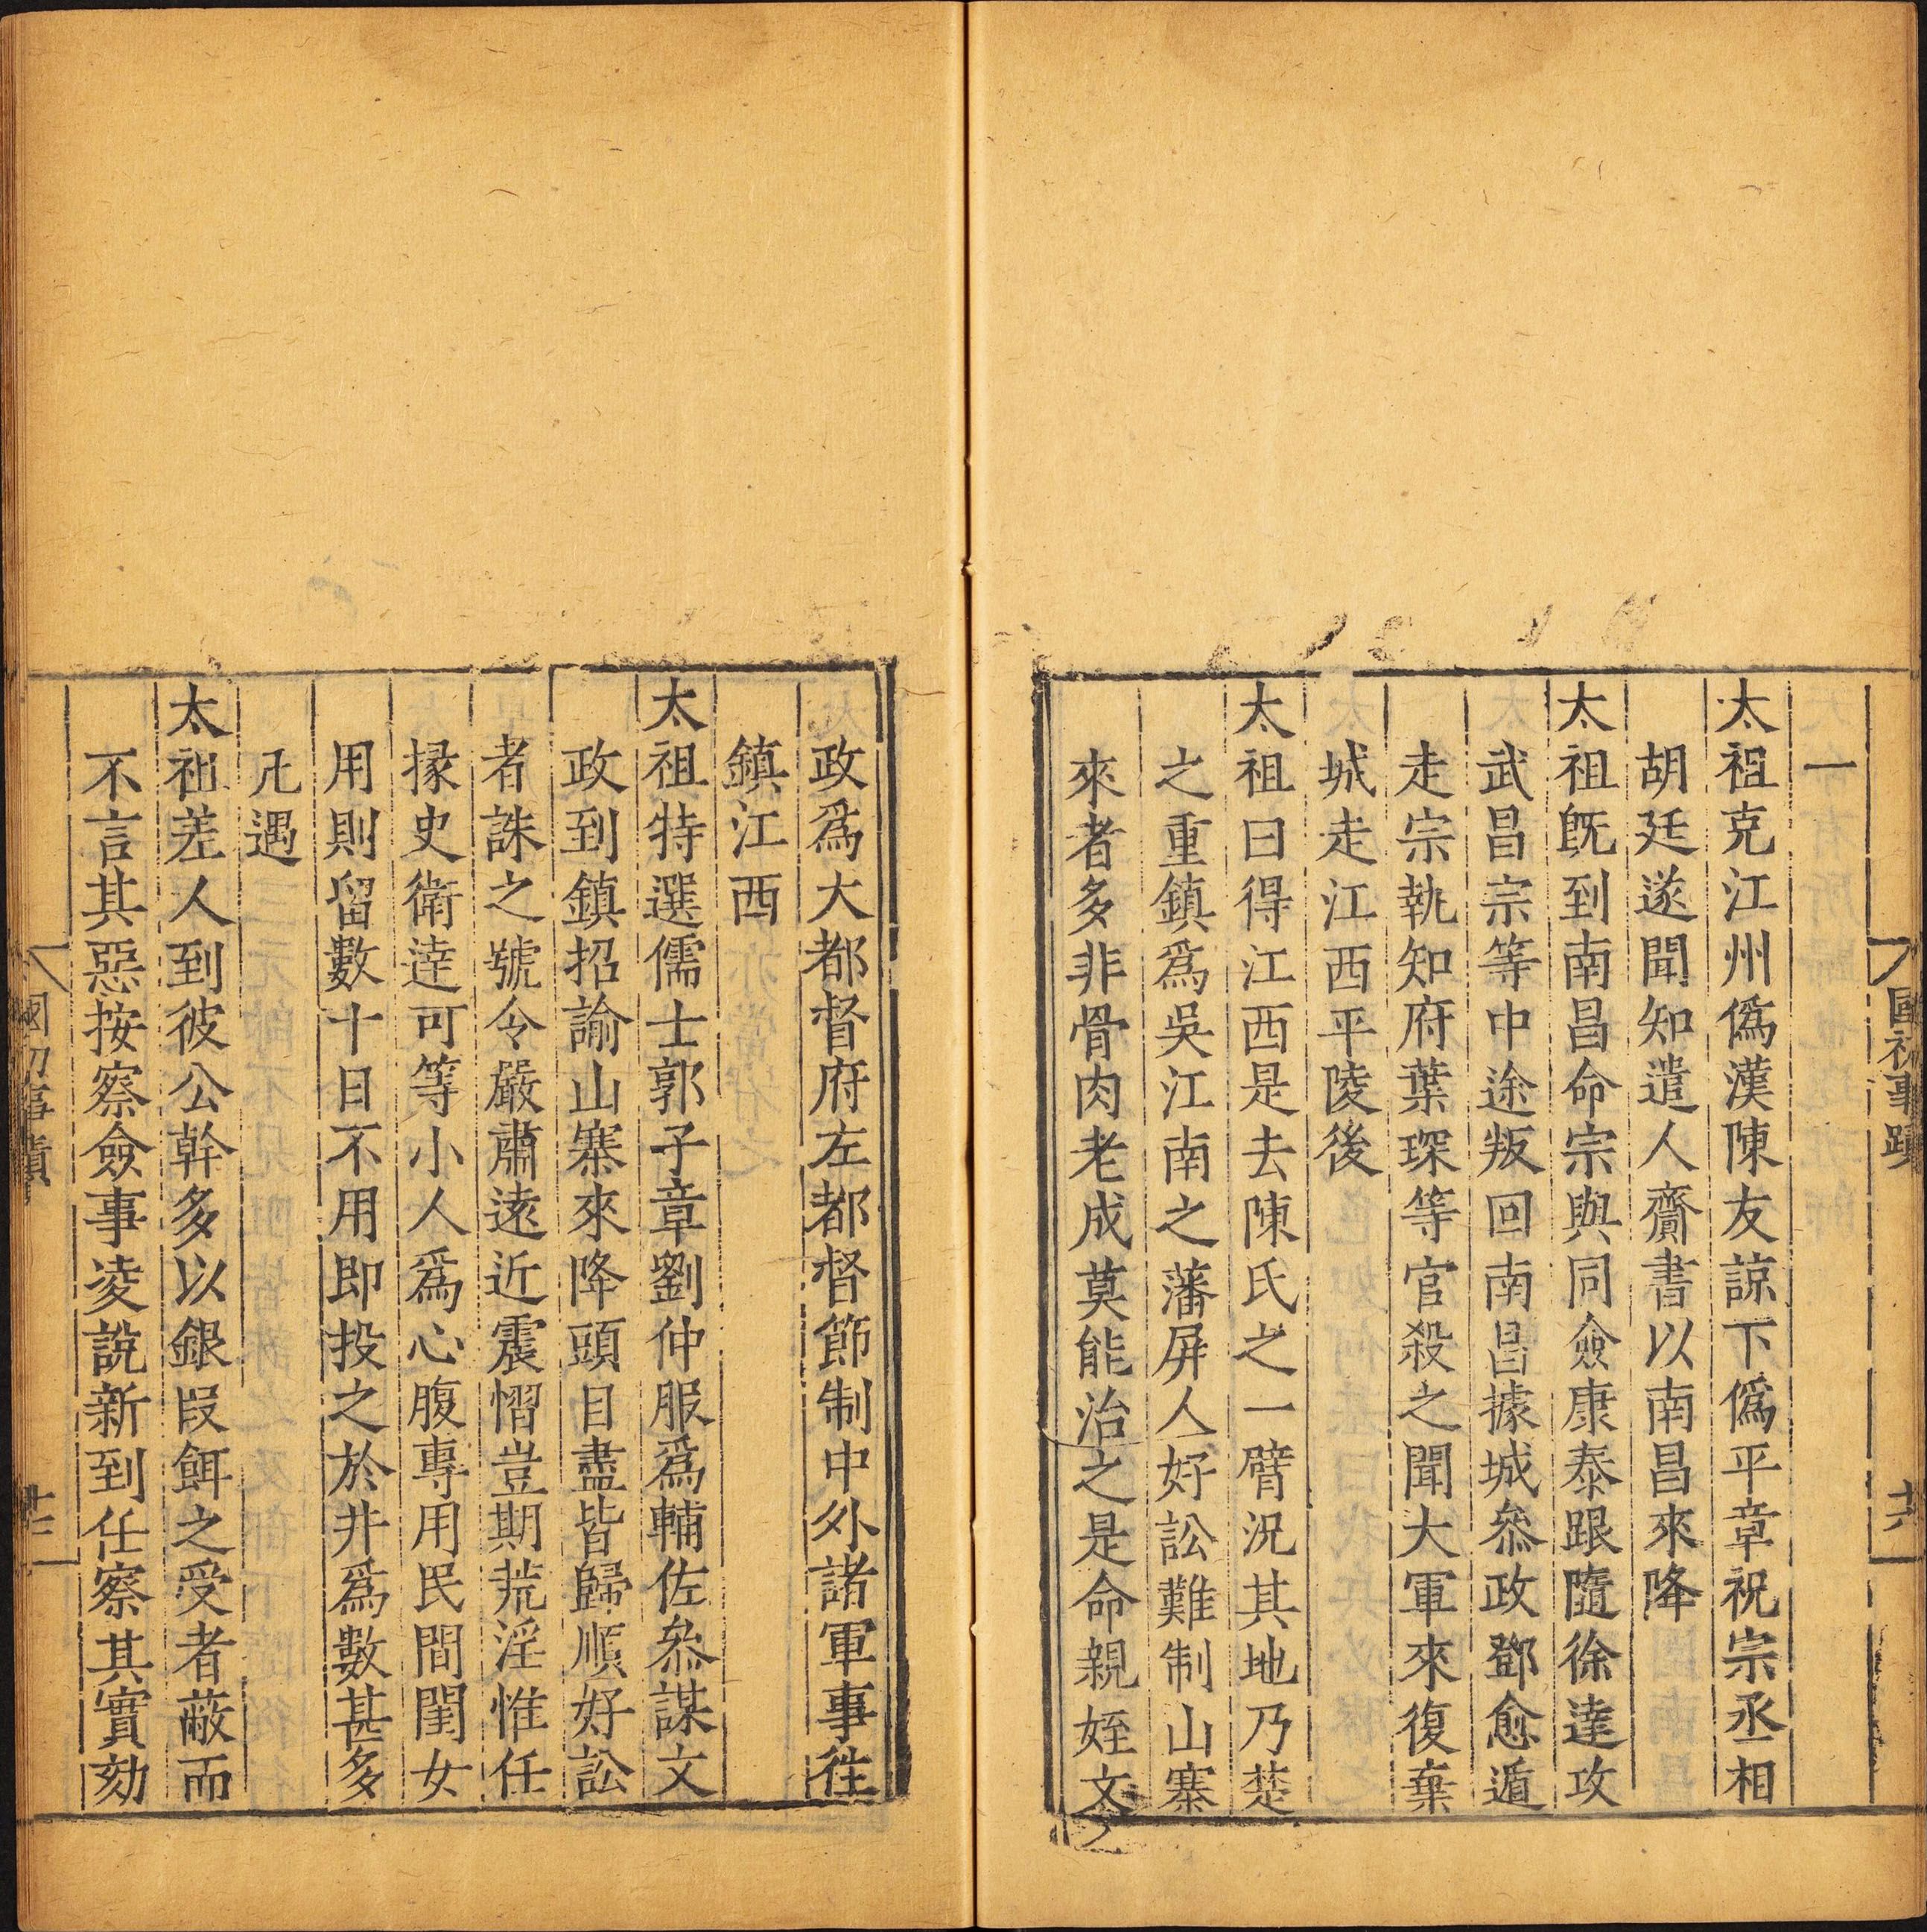 國初事蹟
一
太祖克江州僞漢陳友諒下僞平章祝宗丞相
胡廷遂聞知遣人齎書以南昌來降
太祖旣到南昌命宗與同僉康泰跟隨徐達攻
武昌宗等中途叛回南昌據城叅政鄧愈遁
走宗執知府葉琛等官殺之聞大軍來復棄
城走江西平陵後
太祖曰得江西是去陳氏之一臂況其地乃楚
之重鎮爲吳江南之藩屏人好訟難制山寨
來者多非骨肉老成莫能治之是命親姪文
政爲大都督府左都督節制中外諸軍事徃
鎮江西
太祖特選儒士郭子章劉仲服爲輔佐叅謀文
政到鎮招諭山寨來降頭目盡皆歸順好訟
者誅之號令嚴肅遠近震慴豈期荒淫惟任
掾史衛達可等小人爲心腹專用民間閨女
用則留數十日不用即投之於井爲數甚多
凡遇
太祖差人到彼公幹多以銀段餌之受者蔽而
不言其惡按察僉事凌說新到任察其實劾
國初事蹟